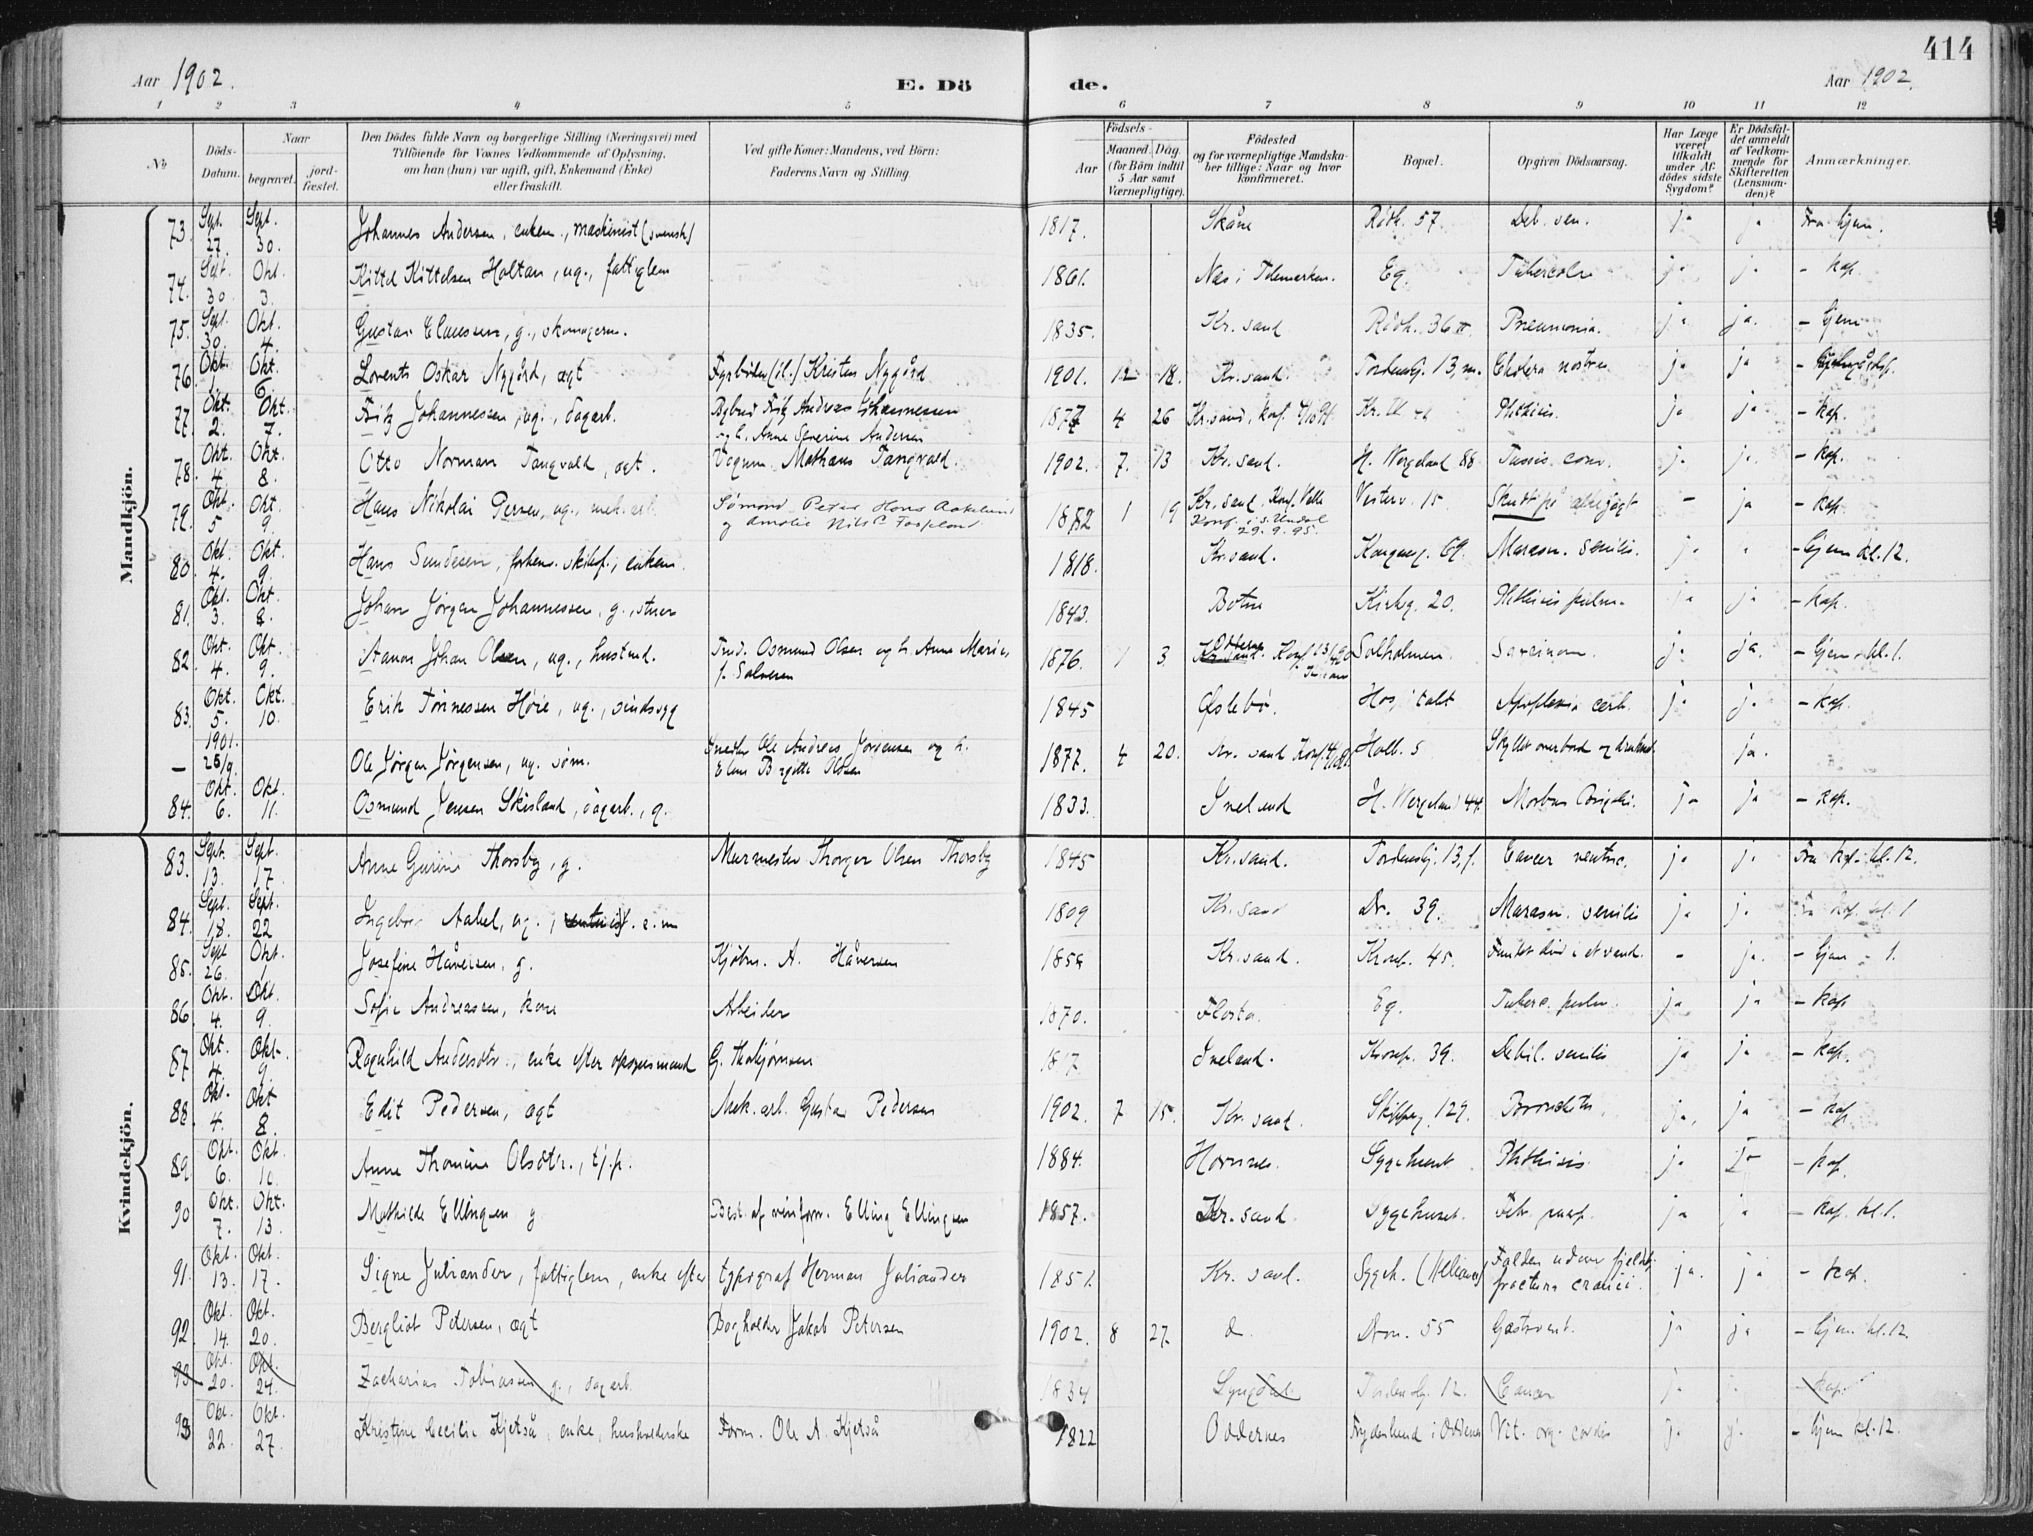 414
Aar 1902. E. Dö de. Aar 1902.
1 2 3 4 5 6 7 8 9 10 11 12
No
Döds-Datum.
Naar
begravet.
jord-fæstet.
Den Dödes fulde Navn og borgerlige Stilling (Næringsvei) med
Tilföiende for Voxnes Vedkommende af Oplysning,
om han (hun) var ugift, gift, Enkemand (Enke)
eller fraskilt.
Ved gifte Koner: Mandens, ved Börn:
Faderens Navn og Stilling.
Födsels-
Aar
Maaned. Dag.
(for Börn indtil
5 Aar samt
Værnepligtige).
Födested
og for værnepligtige Mandska-
ber tillige: Naar og hvor
konfirmeret.
Bopæl.
Opgiven Dödsaarsag.
Har Læge
været
tilkaldt
under Af-
dödes sidste
Sygdom?
Er Dödsfal-
det anmeldt
af Vedkom-
mende for
Skifteretten
(Lensman-
den)?
Anmærkninger.
Mandkjön.
73. Sept. 27. Sept. 30. Johannes Andersen, enkem., maskinist (svensk) 1817. Skåne Rådh. 57. Deb. sen. ja ja Fra hjem.
74. Sept. 30. Okt. 3. Kittel Kittelsen Holtan, ug., fattiglem 1861. Næs i Telemarken. Eg. Tubercolse ja ja - kap.
75. Sept. 30. Okt. 4. Gustav Claussen, g., skomagerm. 1835. Kr.sand Rådh. 36 Pneumonia. ja ja. - hjem
76. Okt. 1. Okt. 6. Lorents Oskar Nygård, ægt Fyrbøder Kristen Nygård 1901. 12 18. Kr.sand. Tordenskj. 13, Cholera nostras ja ja
77. Okt. 2. Okt. 7. Fritz Johannessen, ug., dagarb. Bybud Fritz Andreas Johannessen
og h. Anne Severine Andersen 1877 4 26 Kr.sand, konf. Phthisis. ja ja - kap.
78. Okt. 4. Okt. 8. Otto Norman Tangvald, ægt. Vognm. Mathæus Tangvald. 1902. 7. 13 Kr.sand. H. Wergeland 88 Tussis conv. ja ja - kap.
79. Okt. 5 Okt. 9. Hans Nikolai Persen, ug., mek. arb. Sømand Peter Hans
og Amalie Nils 1882 1 19 Kr.sand, Konf. Valle
Konf. i s. Undal
29.9.95. Vesterv. 15 Skudt på - ja - kap
80. Okt. 4. Okt. 9. Hans Sundesen, forhenv. enkem. 1818. Kr.sand. Kongensg. 69. Marasm. senilis. ja - hjem kl. 12.
81. Okt. 3. Okt. 8. Johan Jørgen Johannessen, g., stuer 1843. Botne Kirkeg. 20. Phthisis pulm. ja ja - kap.
82. Okt. 4. Okt. 9. Aanon Johan Olsen, ug., Osmund Olsen og h. Anne Marie
f. Salvesen 1876. 1 3 Oddernes Konf. Solholmen. Sarcinom. ja ja. - hjem kl. 1.
83. Okt. 5. Okt. 10. Erik Tønnessen Høie, ug., sindssyg 1845 Øslebø. Hospitalt Apoplexia cerb. ja ja - kap.
- 1901. 25/9. Ole Jørgen Jørgensen, ug. søm. Snedker Ole Andreas Jørgensen og h. 1877. 4 20. Kr.sand Konf. Holb. 5 Skyllet overbord og druknet ja.
84. Okt. 6. Okt. 11. Osmund Jensen Skisland, dagarb., g. 1833. Iveland H. Wergeland 44. Morbus Brigthi. ja ja - kap.
Kvindekjön.
83. Sept. 13. Sept. 17. Anne Gurine Thorsby, g. Murmester Thorger Olsen Thorsby 1845 Kr.sand. Tordenskj. 13, Cancer ventric. ja ja Fra kap. kl. 12.
84. Sept. 18. Sept. 22 Ingebor Aabel, ug., 1809 Kr.sand Dr. 39. Marasm. senilis ja ja Fra kap. kl. 1
85. Sept 26. Okt. 1 Josefine Håversen, g. Kjøbm. A. Håversen Kr.sand. Kronp. 45. Fundet død i et vand. - ja. - hjem - 1.
86. Okt. 4. Okt. 9. Sofie Andreassen, kone Arbeider 1870. Flosta. Eg. Tuberc. pulm. ja ja - kap
87. Okt. 4. Okt. 9 Ragnhild Andersdtr., enke efter opsynsmand G. Thobjørnsen 1817 Iveland. Kronp. 39. Debil. senilis ja ja - kap.
88. Okt. 4. Okt 8. Edit Pedersen, ægt Mek. arb. Gustav Pedersen 1902. 7 15. Kr.sand. Skipperg. 129. Bronchitis ja. ja - kap
89. Okt. 6. Okt. 10. Anne Thomine Olsdtr., tj.p. 1884. Hornnes. Sygehuset Phthisis ja ja - kap.
90 Okt. 7. Okt. 13. Mathilde Ellingsen g Best. af Elling Ellingsen 1857. Kr.sand Sygehuset. Febr. puerp. ja ja - kap. kl. 1.
91. Okt. 13. Okt. 17. Signe Juliander, fattiglem, enke efter typograf Herman Juliander 1851. Kr.sand. Sygeh. Falden udover fjeldet
fractura cranici. ja. ja - kap.
92. Okt. 14. Okt. 20. Bergliot Petersen, ægt Bogholder Jakob Petersen 1902. 8 27. d. Dron. 55 Gastroent. ja ja - hjem kl. 12.
93 Okt. 20. Okt. 24. Zacharias Tobiassen g., dagarb. 1834 Lyngdal. Tordenskj. 12. Cancer ja - kap.
93 Okt. 22. Okt. 27. Kristine Cecilie Kjetså, enke, husholderske Form. Ole A. Kjetså 1822 Oddernes Frydenlund i Oddernes Vit. org. cordis ja ja. - hjem kl. 12.